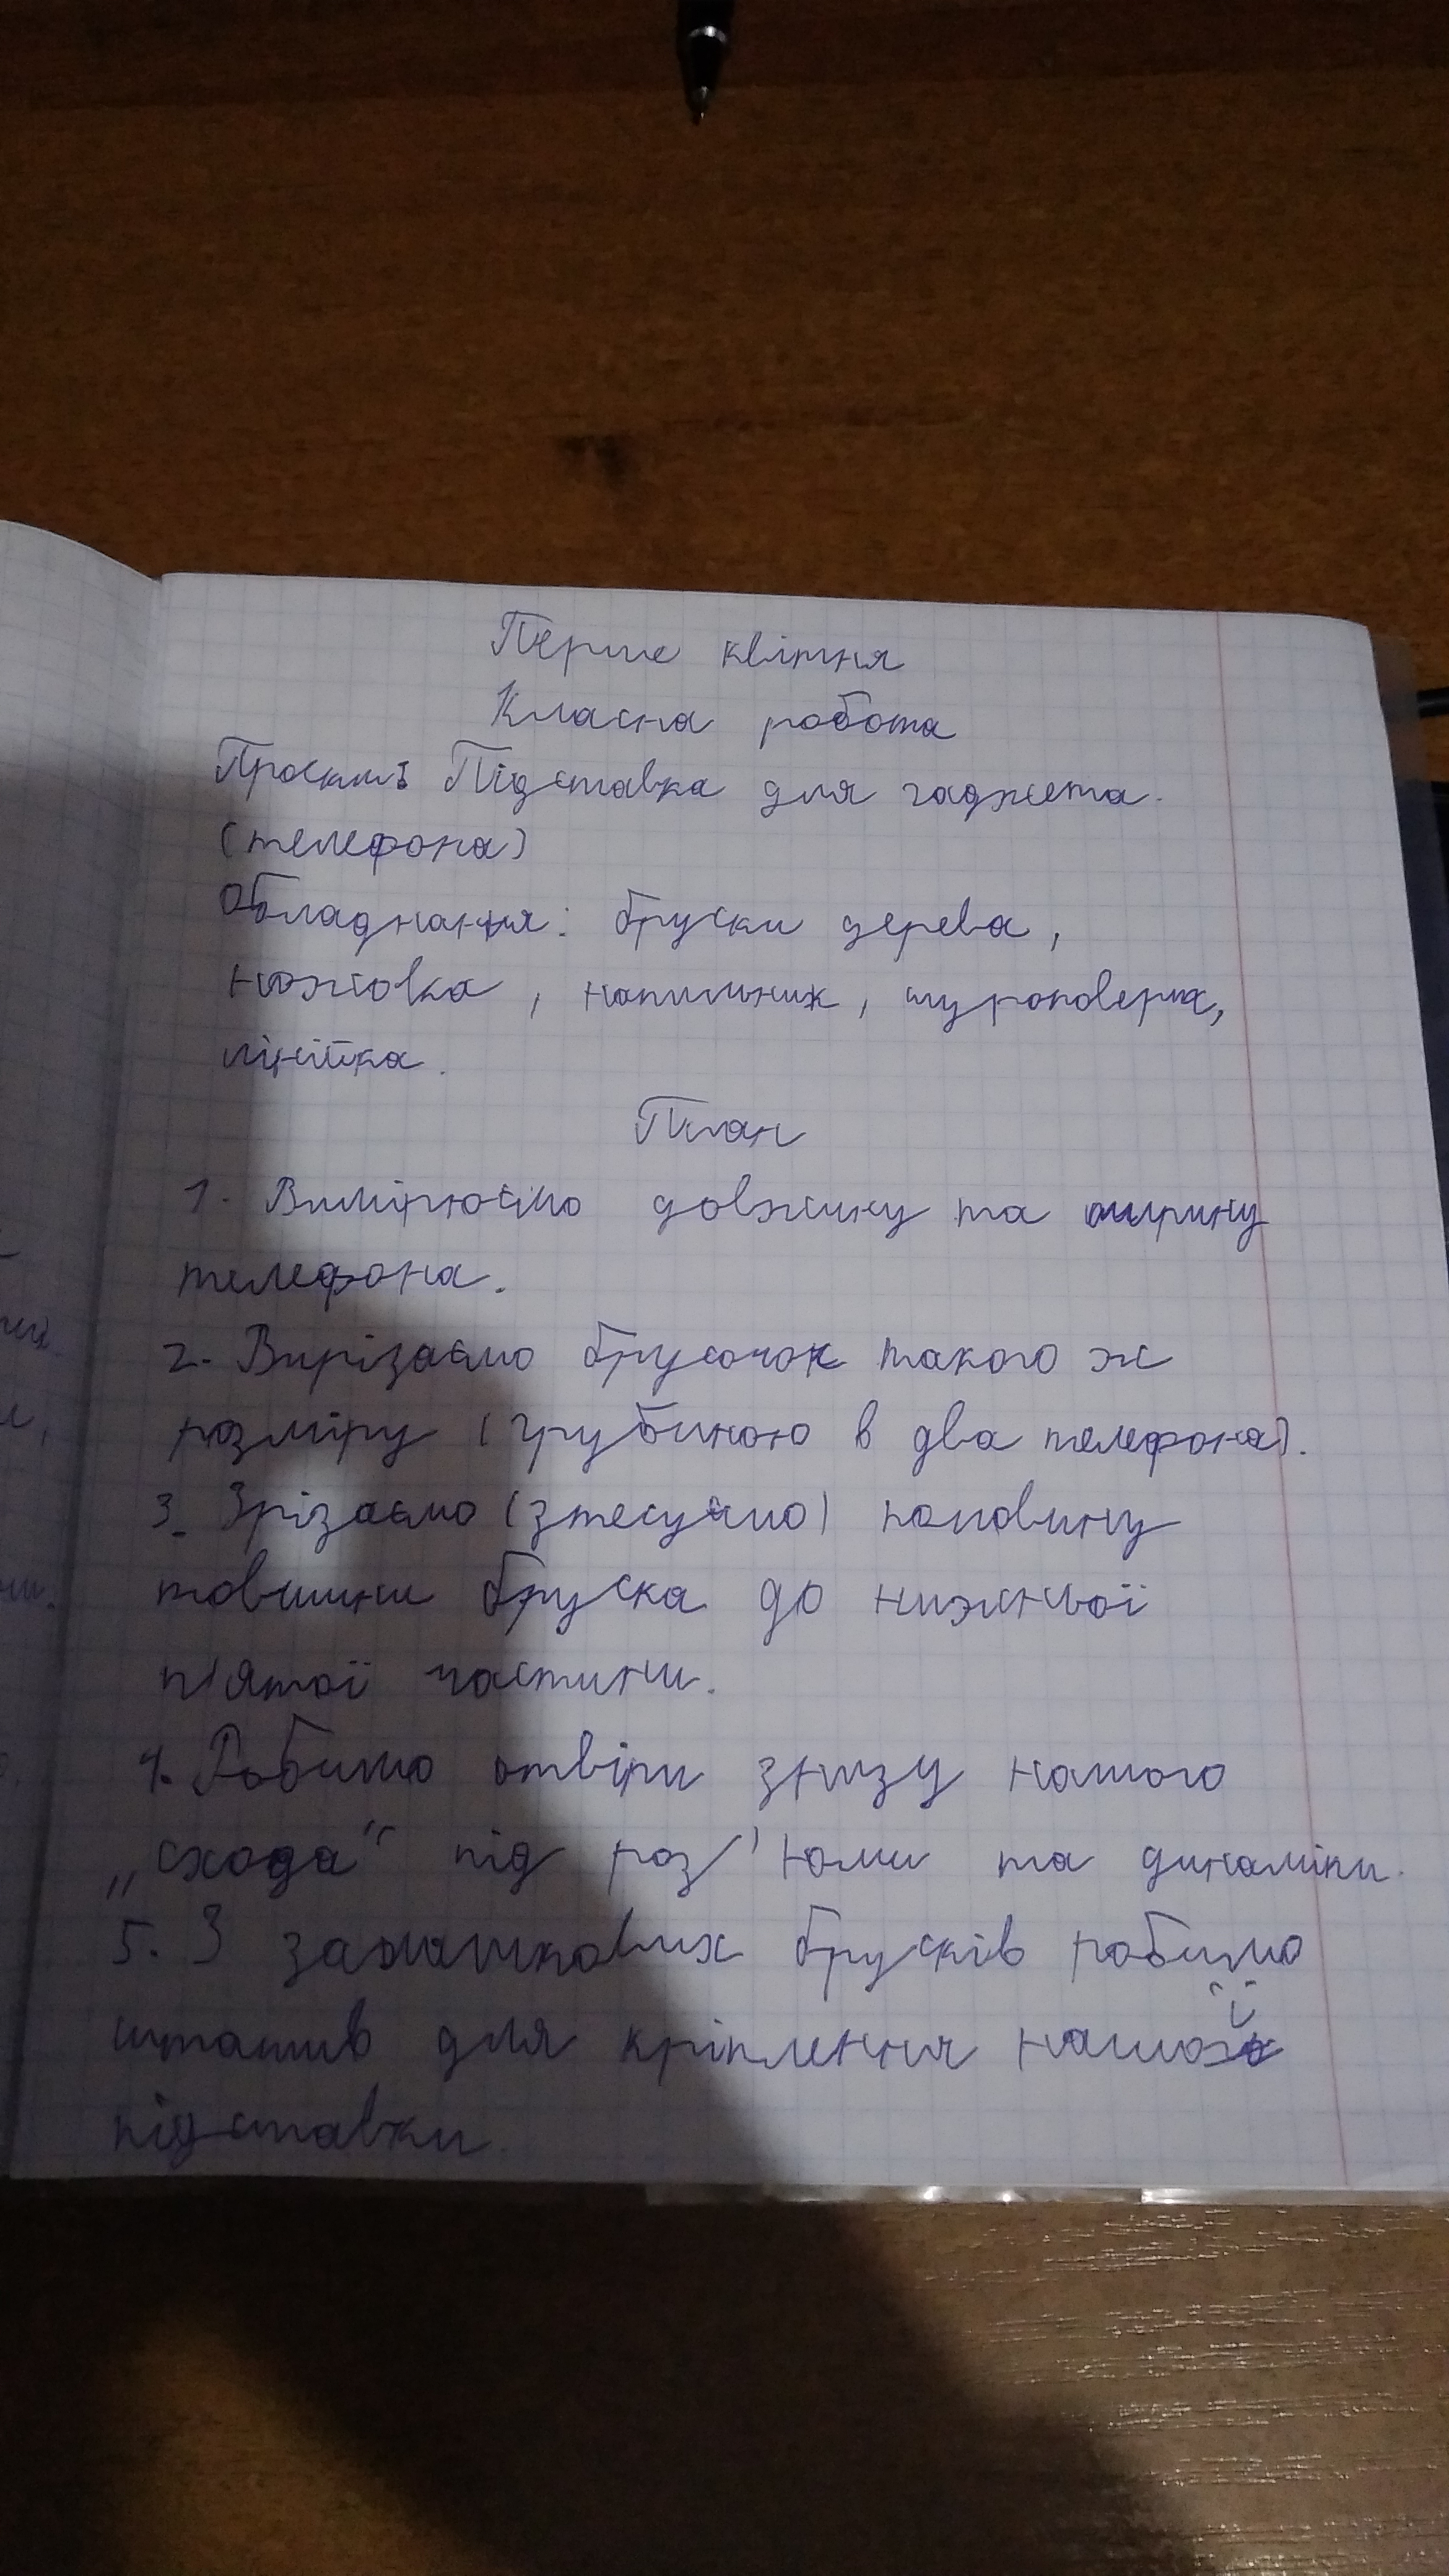 Перше квітня
Класна робота
Проєкт: Підставка для гаджета.
(телефона)
Обладнання: бруски дерева,
ножовка, напильник, шуроповерт,
лінійка.
План
1. Вимірюємо довжину та ширину
телефона.
2. Вирізаємо брусочок такого ж
розміру (грубиною в два телефона).
3. Зрізаємо (зтесуємо) половину
товшини бруска до нижньої
п'ятої частини.
4. Робимо отвіри знизу нашого
„схода“ під роз'юми та динаміки.
5. З залишкових брусків робимо
штатив для кріплення нашої
підставки.